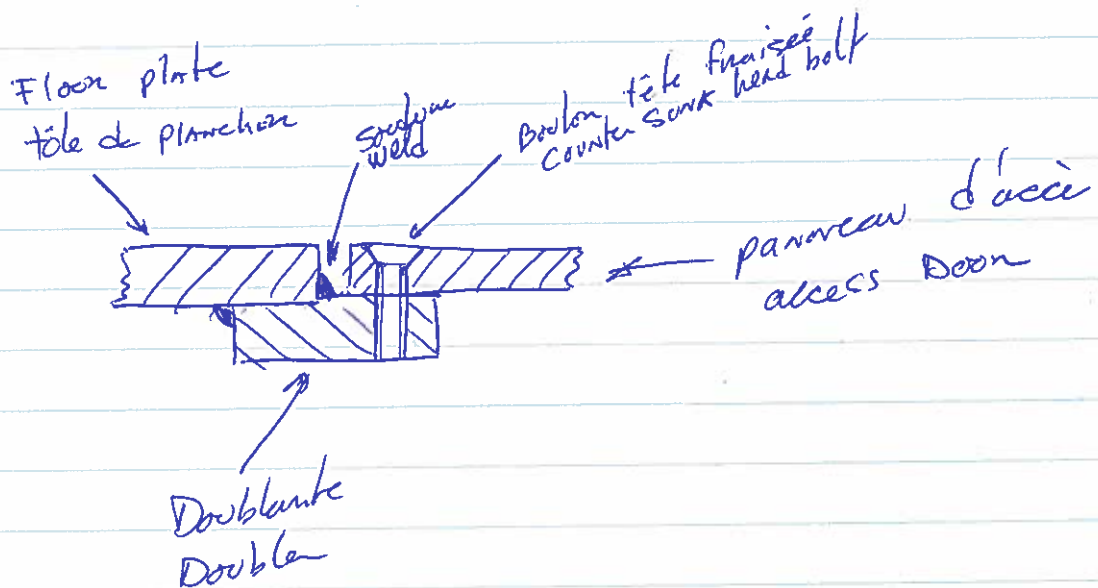 Floor plate
tôle de plancher
soudure
weld
Boulon tête fraisée
counter sunk head bolt
panneau d'accè
access Door
Doublante
Doubler